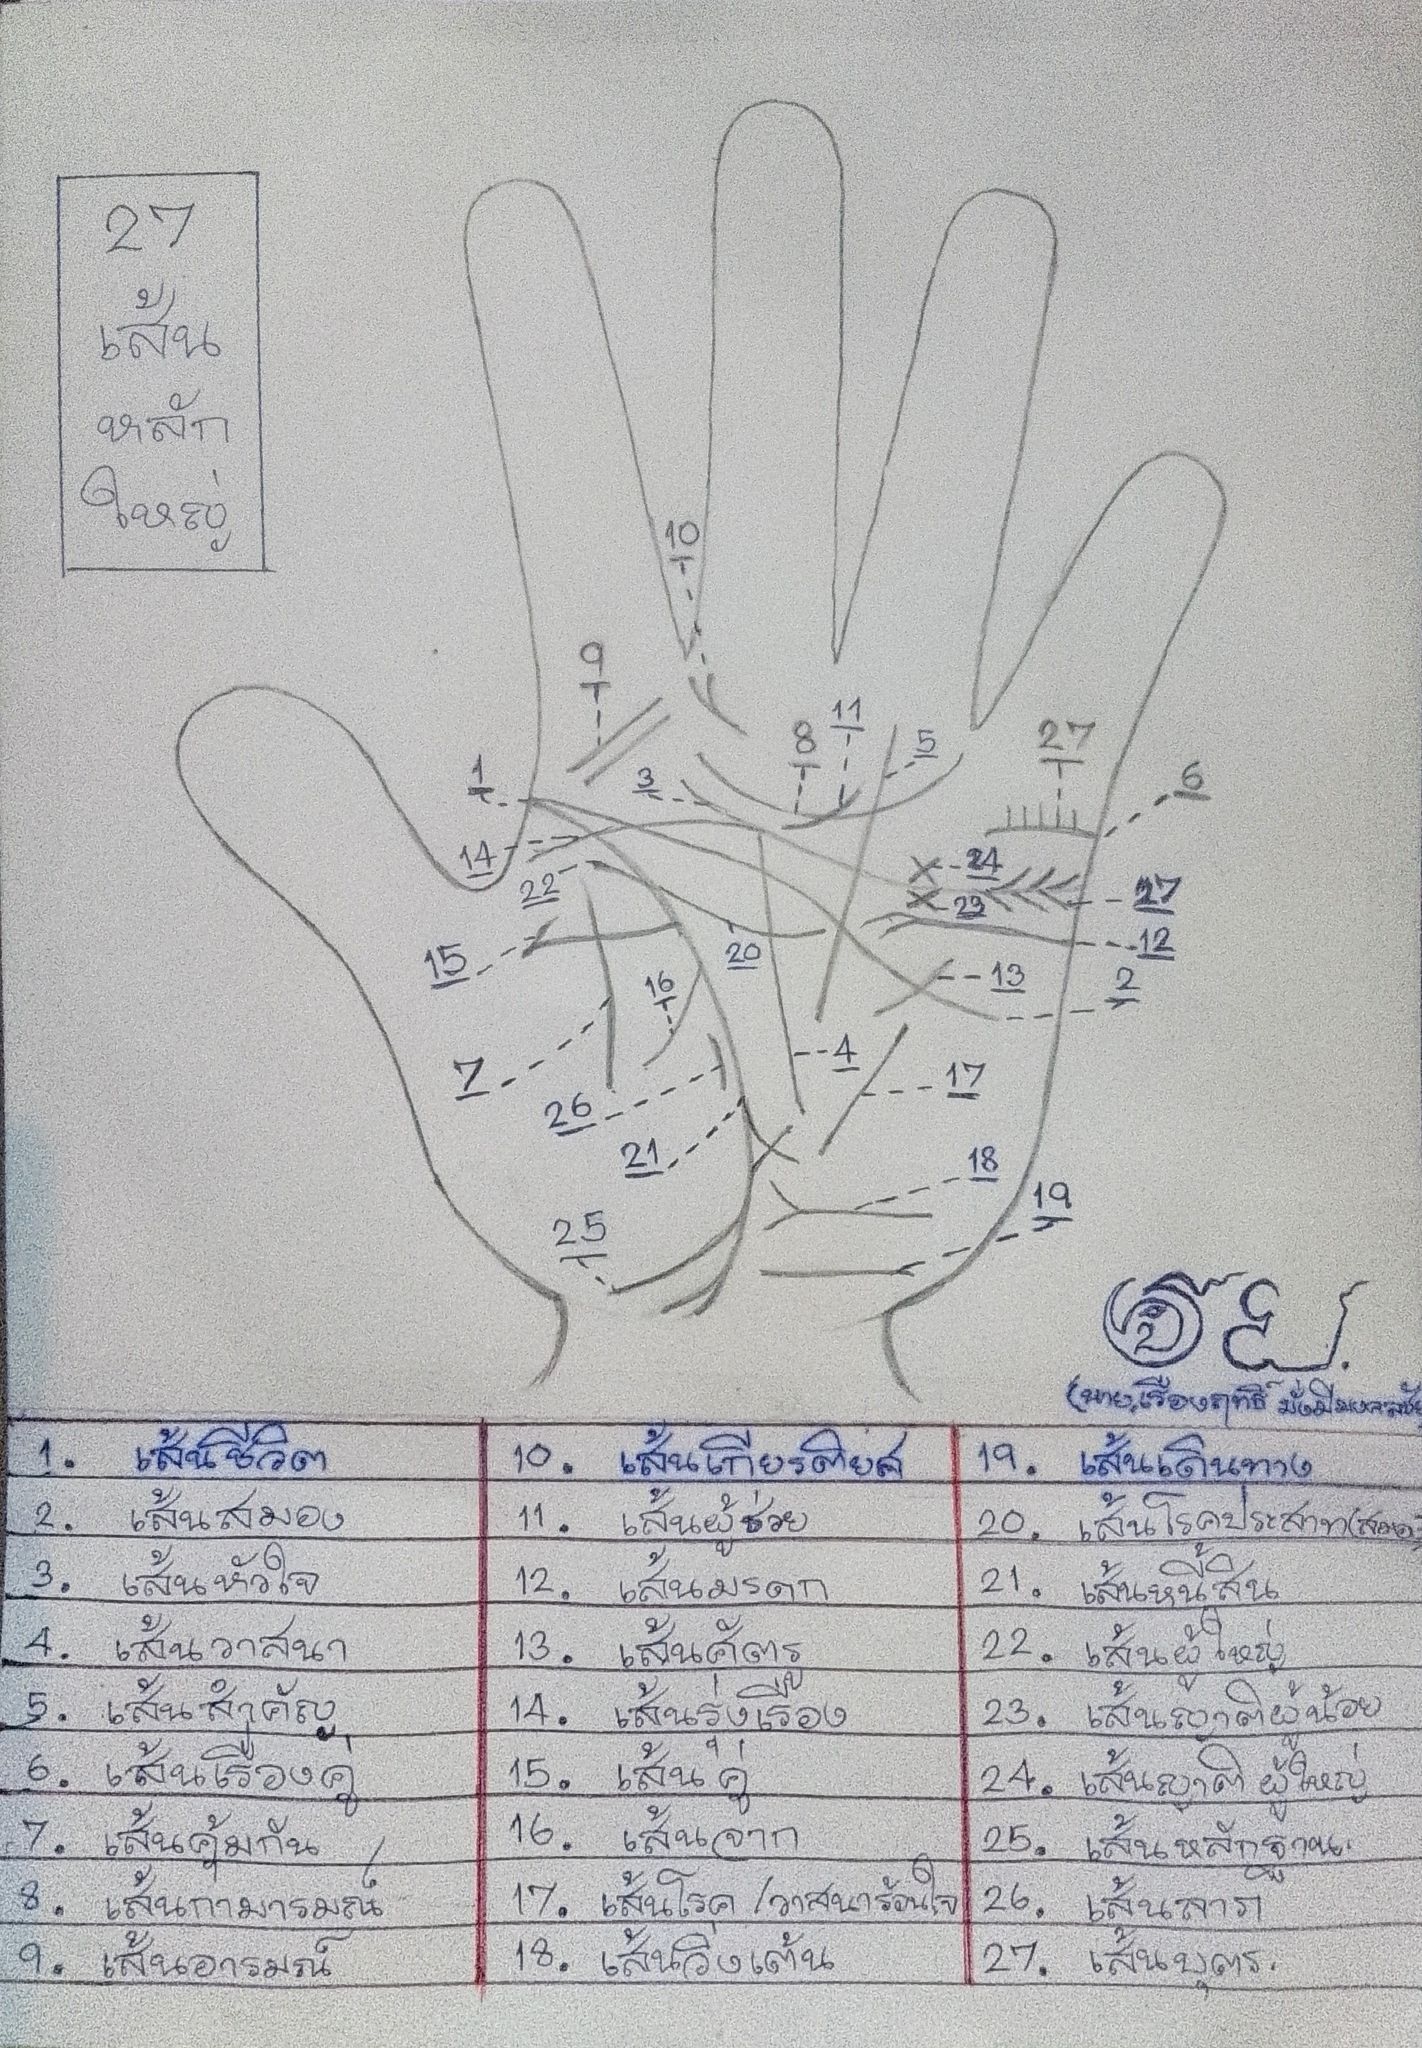 27
เส้น
หลัก
ใหญ่
10
9
11
8
5
27
1
3
6
14
24
22
27
23
15
20
12
16
13
2
7
4
17
26
21
18
19
25
(นาย,เรืองฤทธิ์
1. เส้นชีวิต 10. เส้นเกียรติยศ 19. เส้นเดินทาง
2. เส้นสมอง 11. เส้นผู้ช่วย 20. เส้นโรคประสาท(สมอง)
3. เส้นหัวใจ 12. เส้นมรดก 21. เส้นหนี้สิน
4. เส้นวาสนา 13. เส้นศัตรู 22. เส้นผู้ใหญ่
5. เส้นสำคัญ 14. เส้นรุ่งเรือง 23. เส้นญาติผู้น้อย
6. เส้นเรื่องคู่ 15. เส้นคู่ 24. เส้นญาติผู้ใหญ่
7. เส้นคุ้มกัน 16. เส้นจาก 25. เส้นหลักฐาน.
8. เส้นกามารมณ์ 17. เส้นโรค/วาสนาร้อนใจ 26. เส้นลาภ
9. เส้นอารมณ์ 18. เส้นวิ่งเต้น 27. เส้นบุตร.